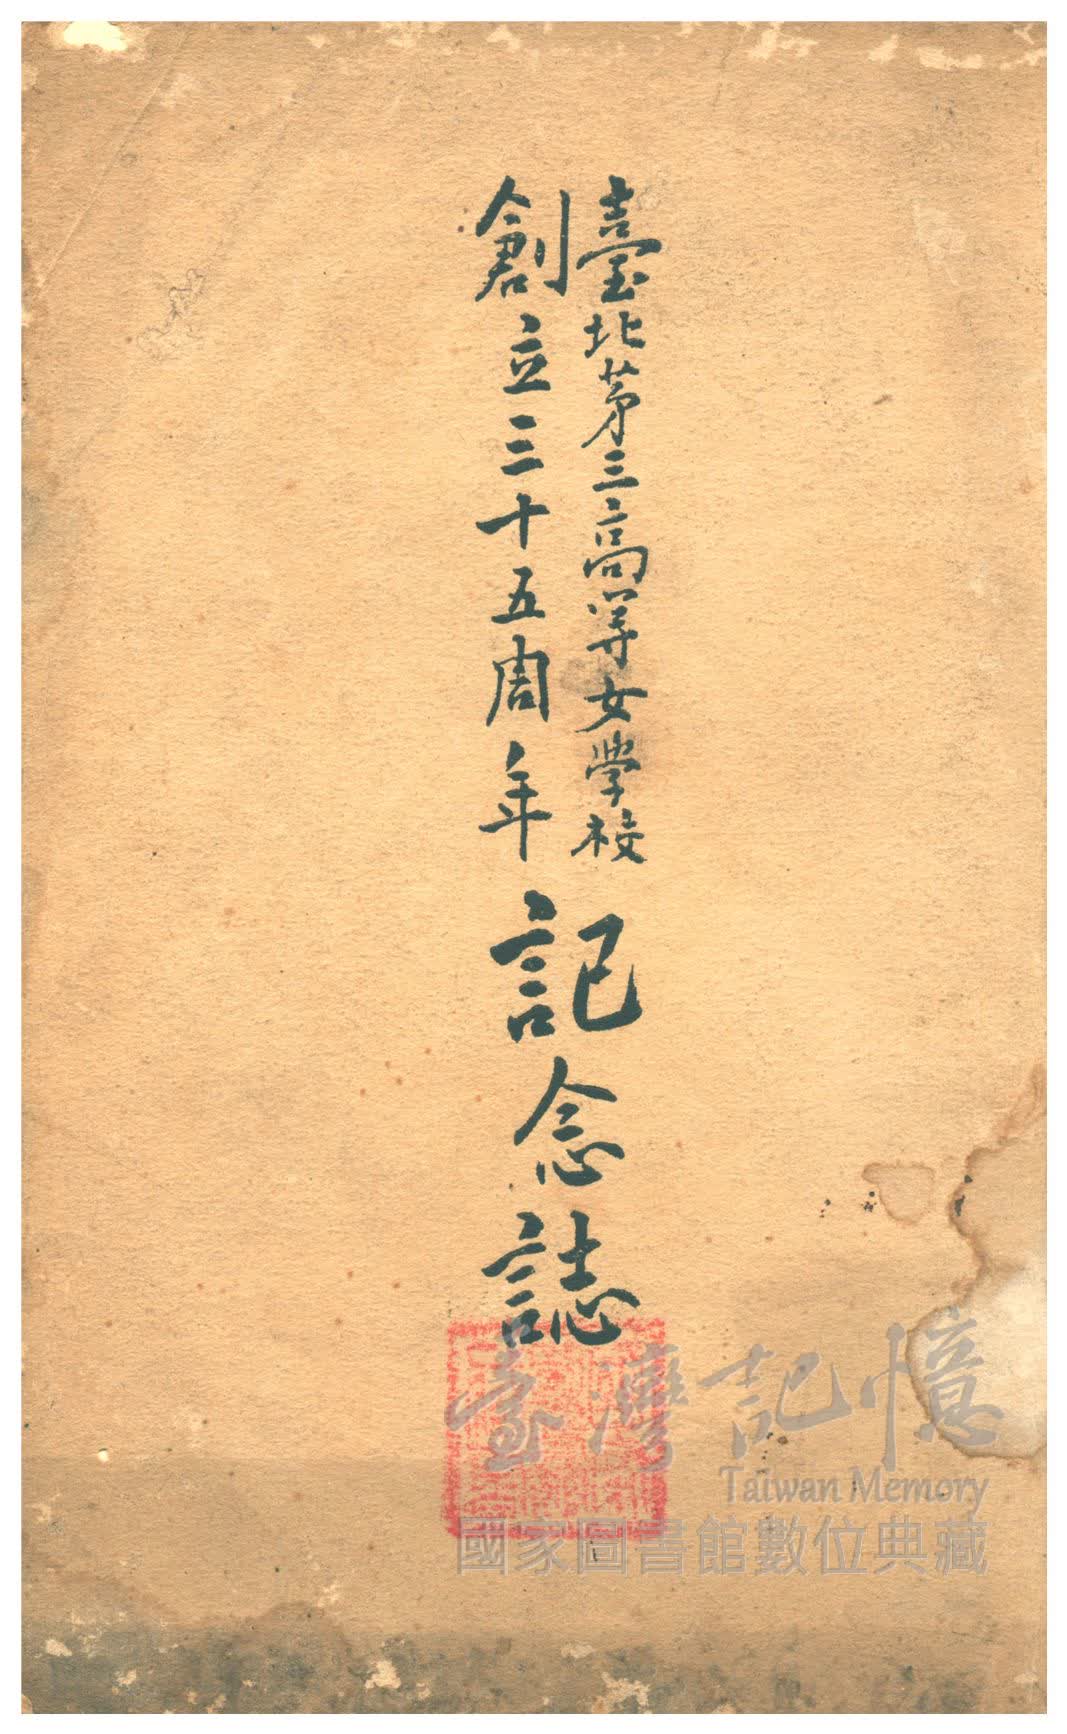 臺北第三高等女学校
創立三十五周年
記念誌
臺灣記憶
Taiwan Memory
國家圖書館數位典藏